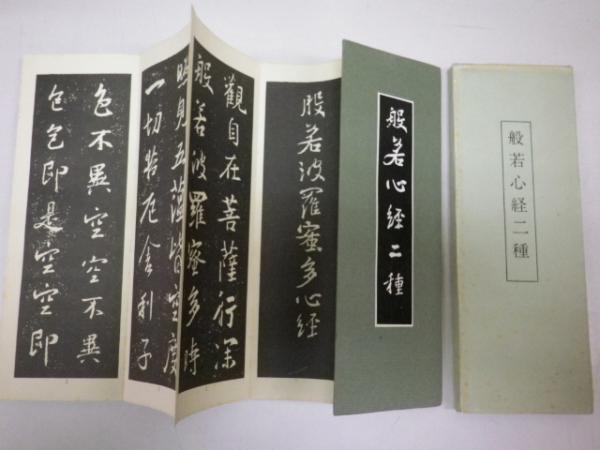 般若心経二種
般若心經二種
般若波羅蜜多心經
觀自在菩薩行深
般若波羅蜜多時
照見五蘊皆空度
一切苦厄舍利子
色不異空空不異
色色即是空空即